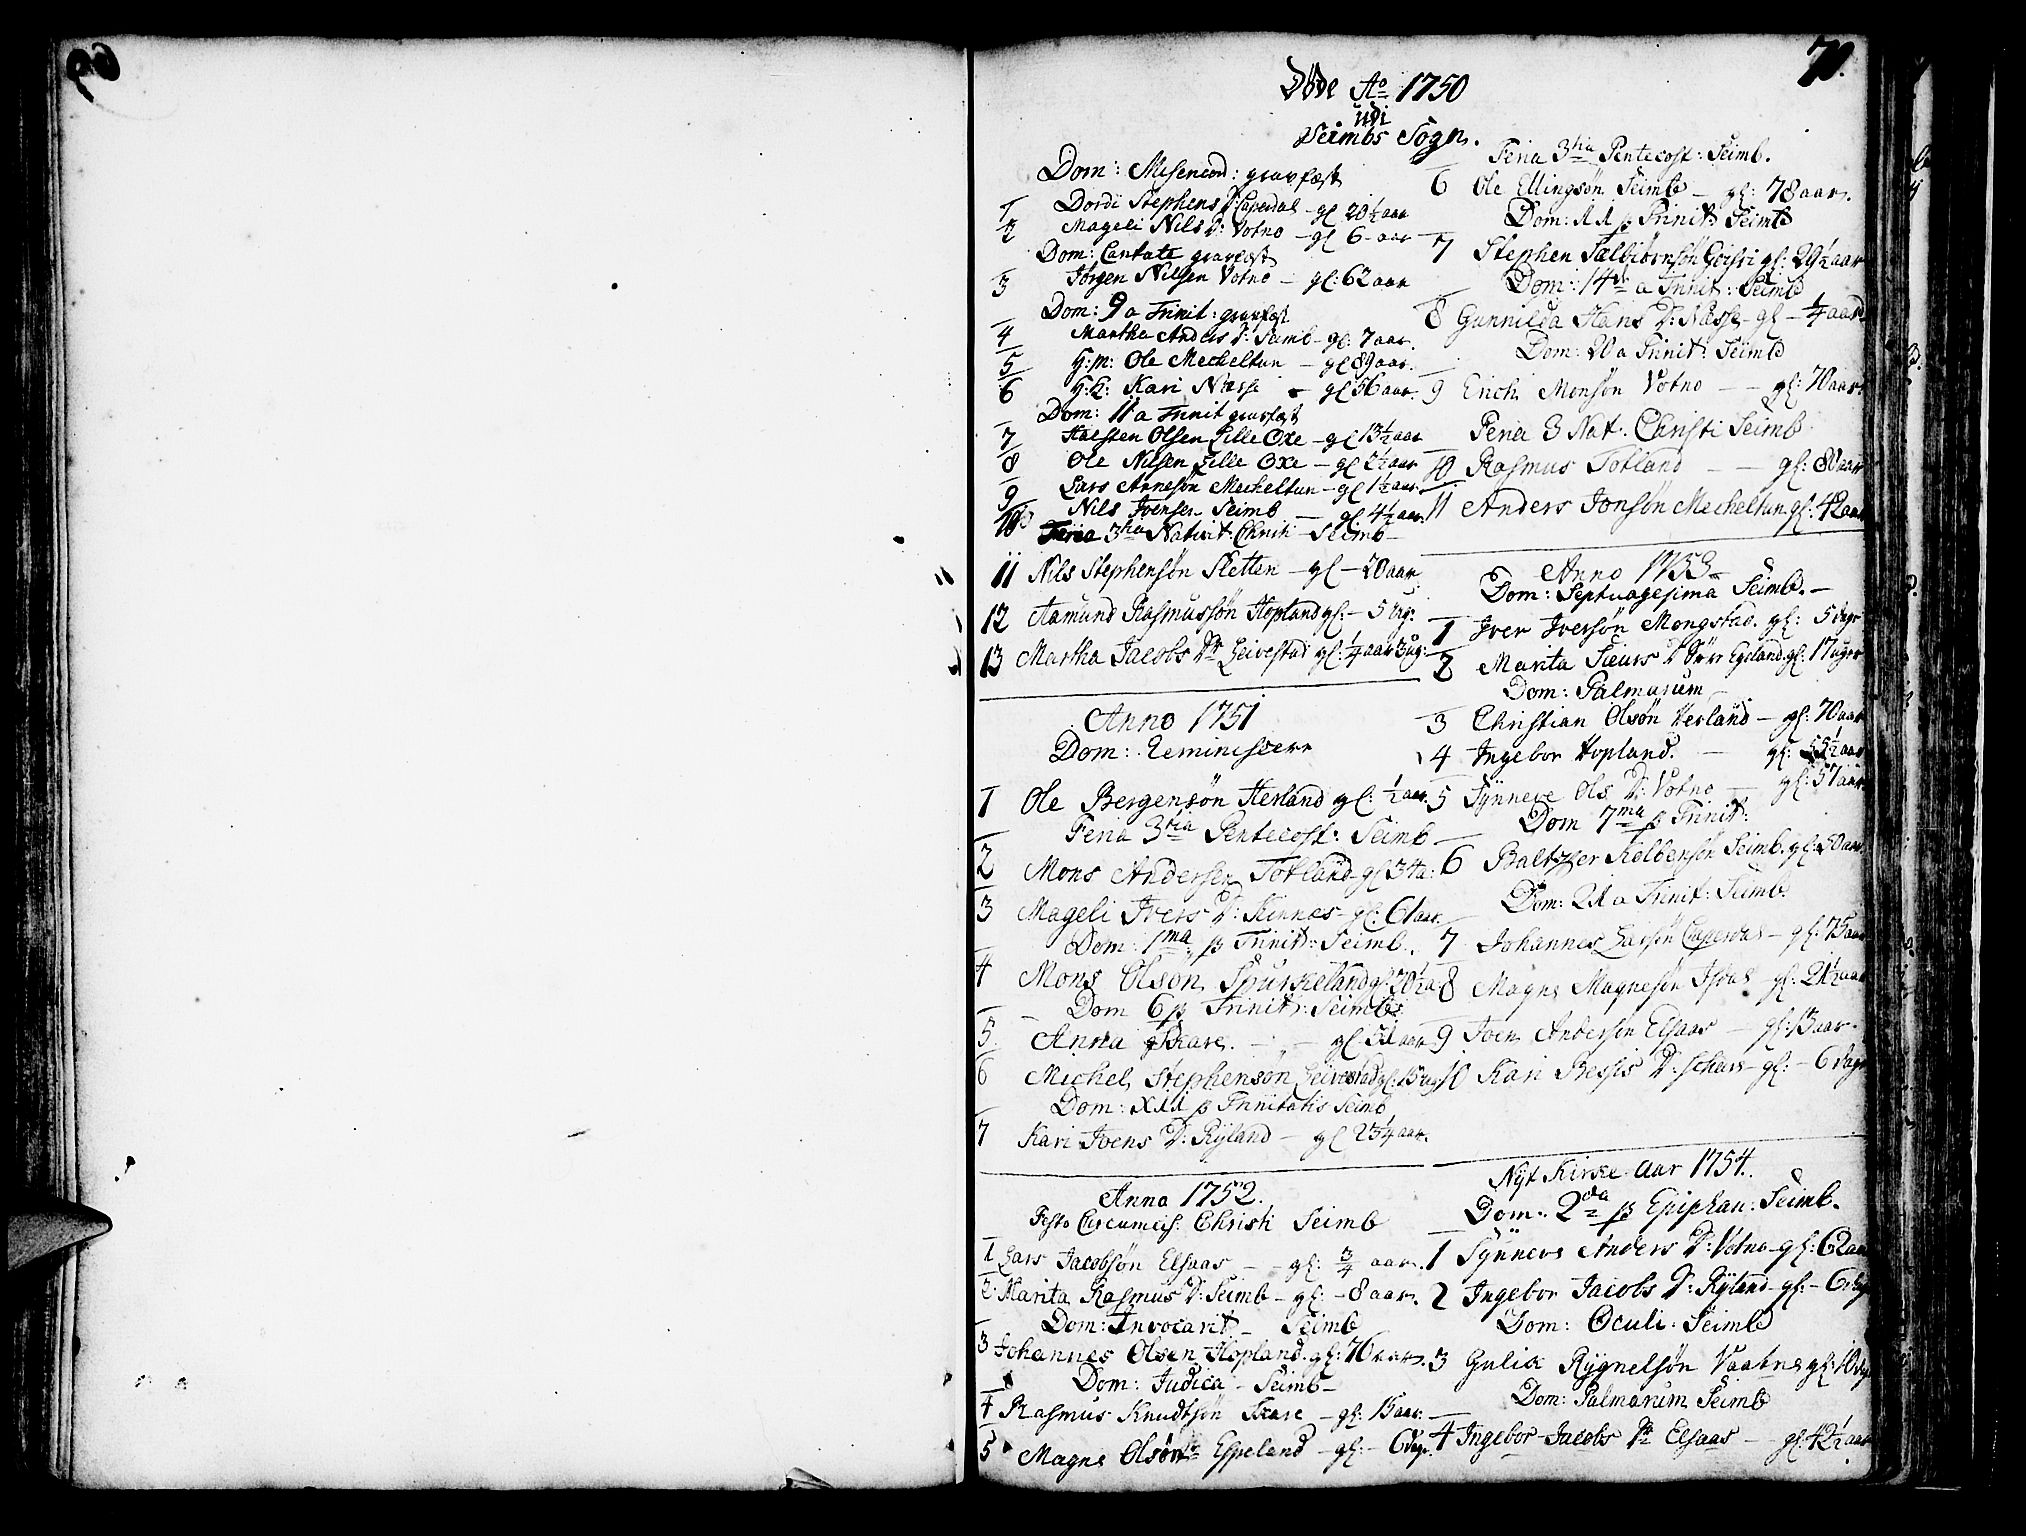 69
70.
Døde Ao 1750
udi
Seimbs Sogn.
Dom: Misericord: gravfæst
1 Dordi Stephens D: Caperdal - gl 20½ aar
2 Mageli Nils D: Votno - gl 6 - aar
Dom: Cantate gravfæst
3 Jørgen Nilsen Votno - gl: 62 aar
Dom: 9 a Trinit: gravfæst
4 Martha Anders D: Seimb - gl: 7 aar.
5 H:M: Ole Mecheltun - gl 89 aar.
6 H:K: Kari Næsse - gl 56 aar.
Dom: 11 a Trinit gravfæst
7 Halsten Olsen Lille Oxe - gl 13½ aar
8 Ole Nilsen Lille Oxe - gl 2½ aar
9 Lars Arnesøn Mecheltun - gl 1½ aar.
10 Nils Joensen Seimb - gl: 4½ aar.
Feria 3tia Nativit: Christi - Seimb -
11 Nils Stephensøn Sletten - gl - 20 aar
12 Aamund Rasmussøn Hopland gl: - 5 ug:
13 Martha Jacobs Dr Leivestad gl: ¼ aar 3 ug:
Anno 1751
Dom: Reminiscere
1 Ole Bergensøn Herland gl: ½ aar.
Feria 3tia Pentecost: Seimb
2 Mons Andersen Totland gl 34 a:
3 Mageli Ivers D: Kinnes - gl: 61 aar.
Dom: 1ma p Trinit: Seimb.
4 Mons Olsøn Spurkeland gl: 30½ a:
Dom 6 p Trinit: Seimb:
5. Anna Skare. - - gl 51 aar
6 Michel Stephensøn Leivestad gl: 15 ug:
Dom: XXI p Trinitatis Seimb
7 Kari Joens D: Ryland - gl 23¼ aar.
Anno 1752.
Festo Circumcis: Christi Seimb
1 Lars Jacobsøn Elsaas - - gl: ¾ aar.
2. Marita Rasmus D: Seimb - gl: - 8 aar.
Dom: Invocavit - Seimb
3 Johannes Olsen Hopland. gl: 76 aar.
Dom: Judica - Seimb -
4 Rasmus Knudtsøn Skare - gl: 15 aar.
5 Magne Olsøn Espeland - gl: - 6 dage
Feria 3tia Pentecost: Seimb.
6 Ole Ellingsøn Seimb - gl: 78 aar.
Dom: XI p Trinit: Seimb
7 Stephen Sælbiørnsøn gl: 29½ aar
Dom: 14de a Trinit: Seimb
8 Gunnilda Hans D: Næsse - gl - ¼ aar
Dom: 20 a Trinit: Seimb
9 Erich Monsøn Votno - - gl: 70 aar
Feria 3 Nat. Christi Seimb
10 Rasmus Totland - - gl: 80 aar
11 Anders Jonsøn Mecheltun gl: 42 aar
Anno 1753
Dom: Septuagesima Seimb. -
1 Iver Iversøn Mongstad. gl: 5 dage
2 Marita Siurs D Egeland. gl: 17 uger
Dom: Palmarum
3 Christian Olsøn Herland - gl: 70 aar
4 Ingebor Hopland. - gl: 55½ aar
5 Synneve Ols D: Votno - gl: 57 aar
Dom 7ma p Trinit:
6 Baltzer Kolbensøn Seimb. gl: 50 aar
Dom: 21 a Trinit: Seimb.
7 Johannes Larsøn Caperdal - gl: 75 aar
8 Magne Magnesøn Isdal gl: 21½ aar
9 Joen Andersøn Elsaas - gl: 13 aar.
10 Kari Bessis D: Schare - gl: - 6 dage
Nyt Kirke-Aar 1754.
Dom: 2da p Epiphan: Seimb.
1 Synneve Anders D: Votno - gl: 62 aar
2 Ingebor Jacobs D: Ryland - gl: - 6 dag
Dom: Oculi. Seimb
3 Gulik Rygnelsøn gl: 10 dag
Dom: Palmarum Seimb
4 Ingebor Jacobs Dr Elsaas - gl: 42½ aar